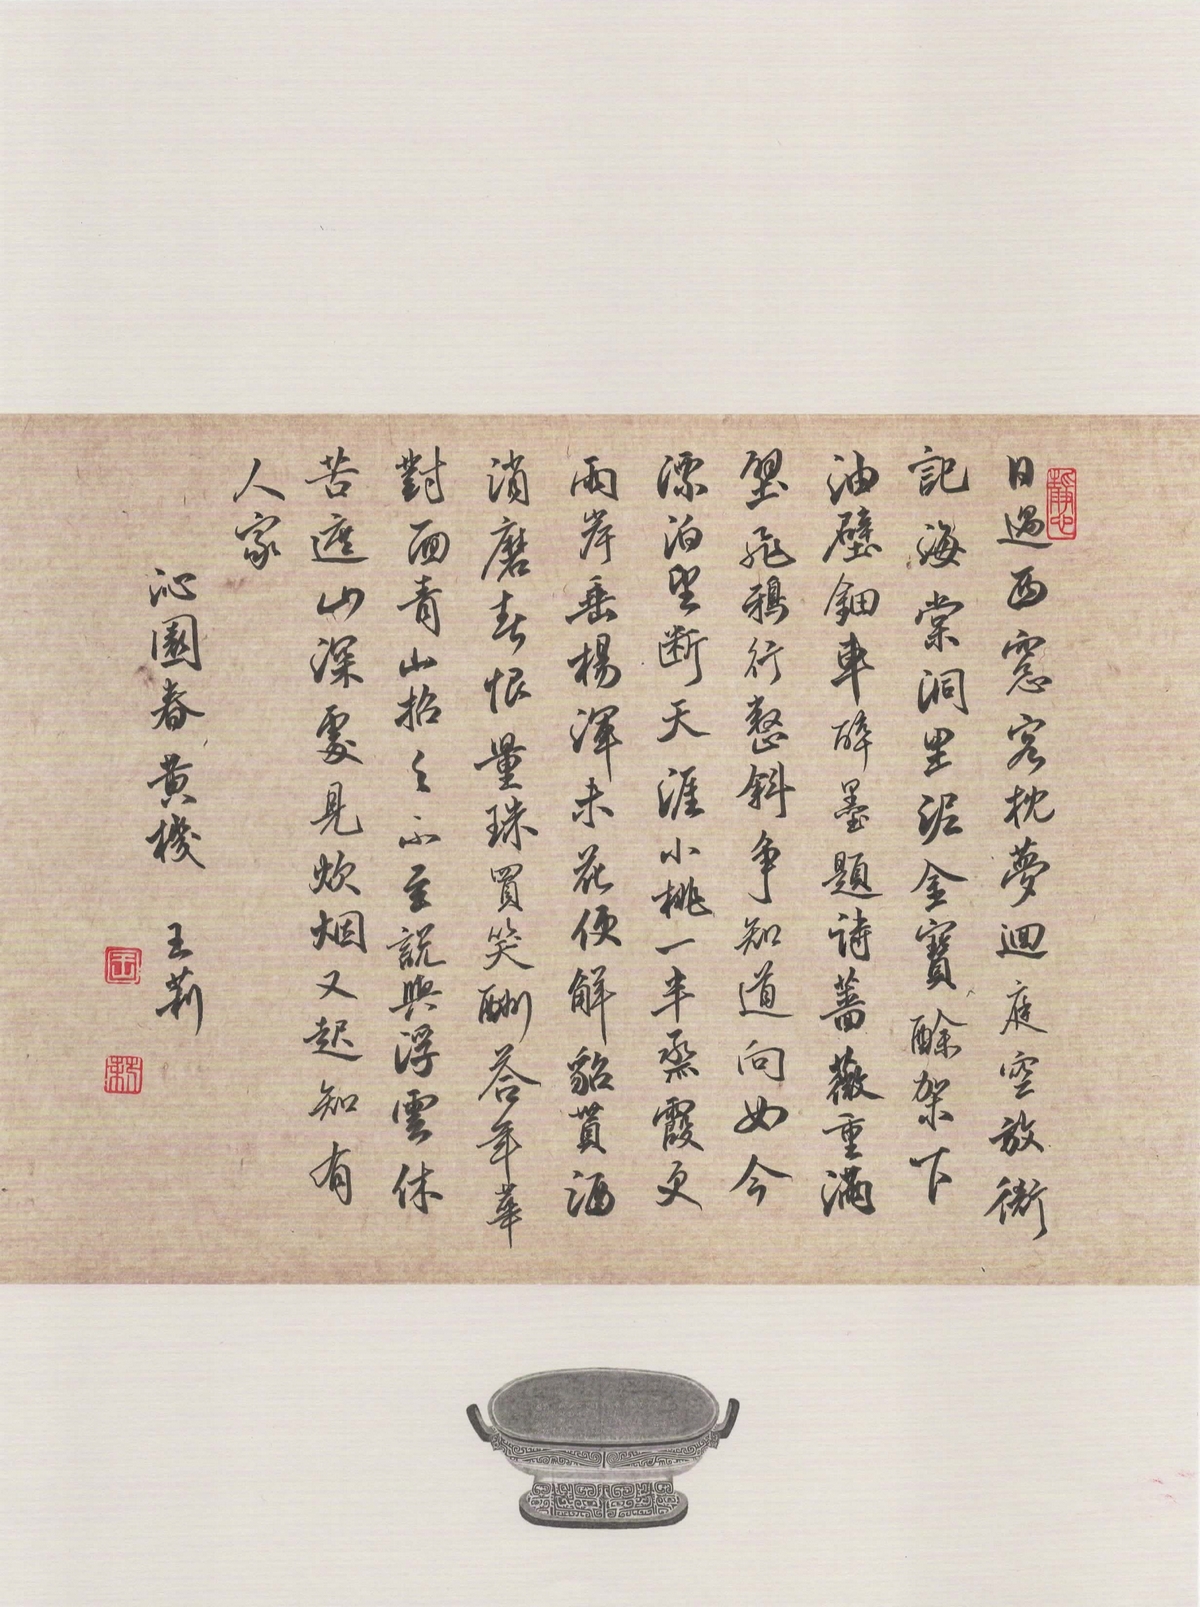 日過西窓客枕夢迴庭空放衙
記海棠洞里泥金寶酴架下
油壁鈿車醉墨題詩薔薇重滿
壁飛鴉行整斜争知道向如今
漂泊望断天涯小桃一半烝霞更
兩岸垂楊渾未花便解貂貰酒
消磨春恨量珠買笑酬荅年華
對面青山招之不至說與浮雲休
苦遮山深處見炊烟又起知有
人家
沁園春黄機
王莉
靜心
王
莉